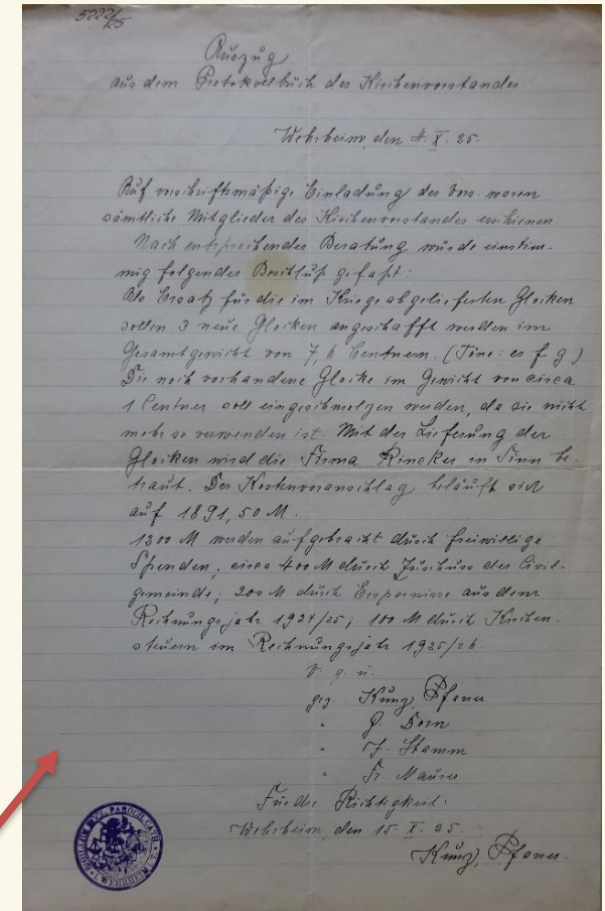 5222/25
Auszug
aus dem Protokollbuch des Kirchenvorstandes.
Wehrheim, den 4. X. 25.
Auf vorschriftsmäßige Einladung des Vors. waren
sämtliche Mitglieder des Kirchenvorstandes erschienen
Nach entsprechender Beratung wurde einstim-
mig folgender Beschluß gefaßt:
Als Ersatz für die im Kriege abgelieferten Glocken
sollen 3 neue Glocken angeschafft werden im
Gesamtgewicht von 7,6 Centnern. (Töne: es f g)
Die noch vorhandene Glocke im Gewicht von circa
1 Centner soll eingeschmolzen werden, da sie nicht
mehr so verwenden ist. Mit der Lieferung der
Glocken wird die Firma Rincker in Sinn be-
traut. Der Kostenvoranschlag beläuft sich
auf 1891,50 M.
1200 M werden aufgebracht durch freiwillige
Spenden; circa 400 M durch Zuschuss der Civil-
gemeinde; 200 M durch Ersparnisse aus dem
Rechnungsjahr 1924/25; 100 M durch Kirchen-
steuern im Rechnungsjahr 1925/26
v. g. u.
gez. Kunz, Pfarrer
" J. Stamm
" Fr Maurer
Für die Richtigkeit:
Wehrheim, den 15. X. 25.
Kunz, Pfarrer.